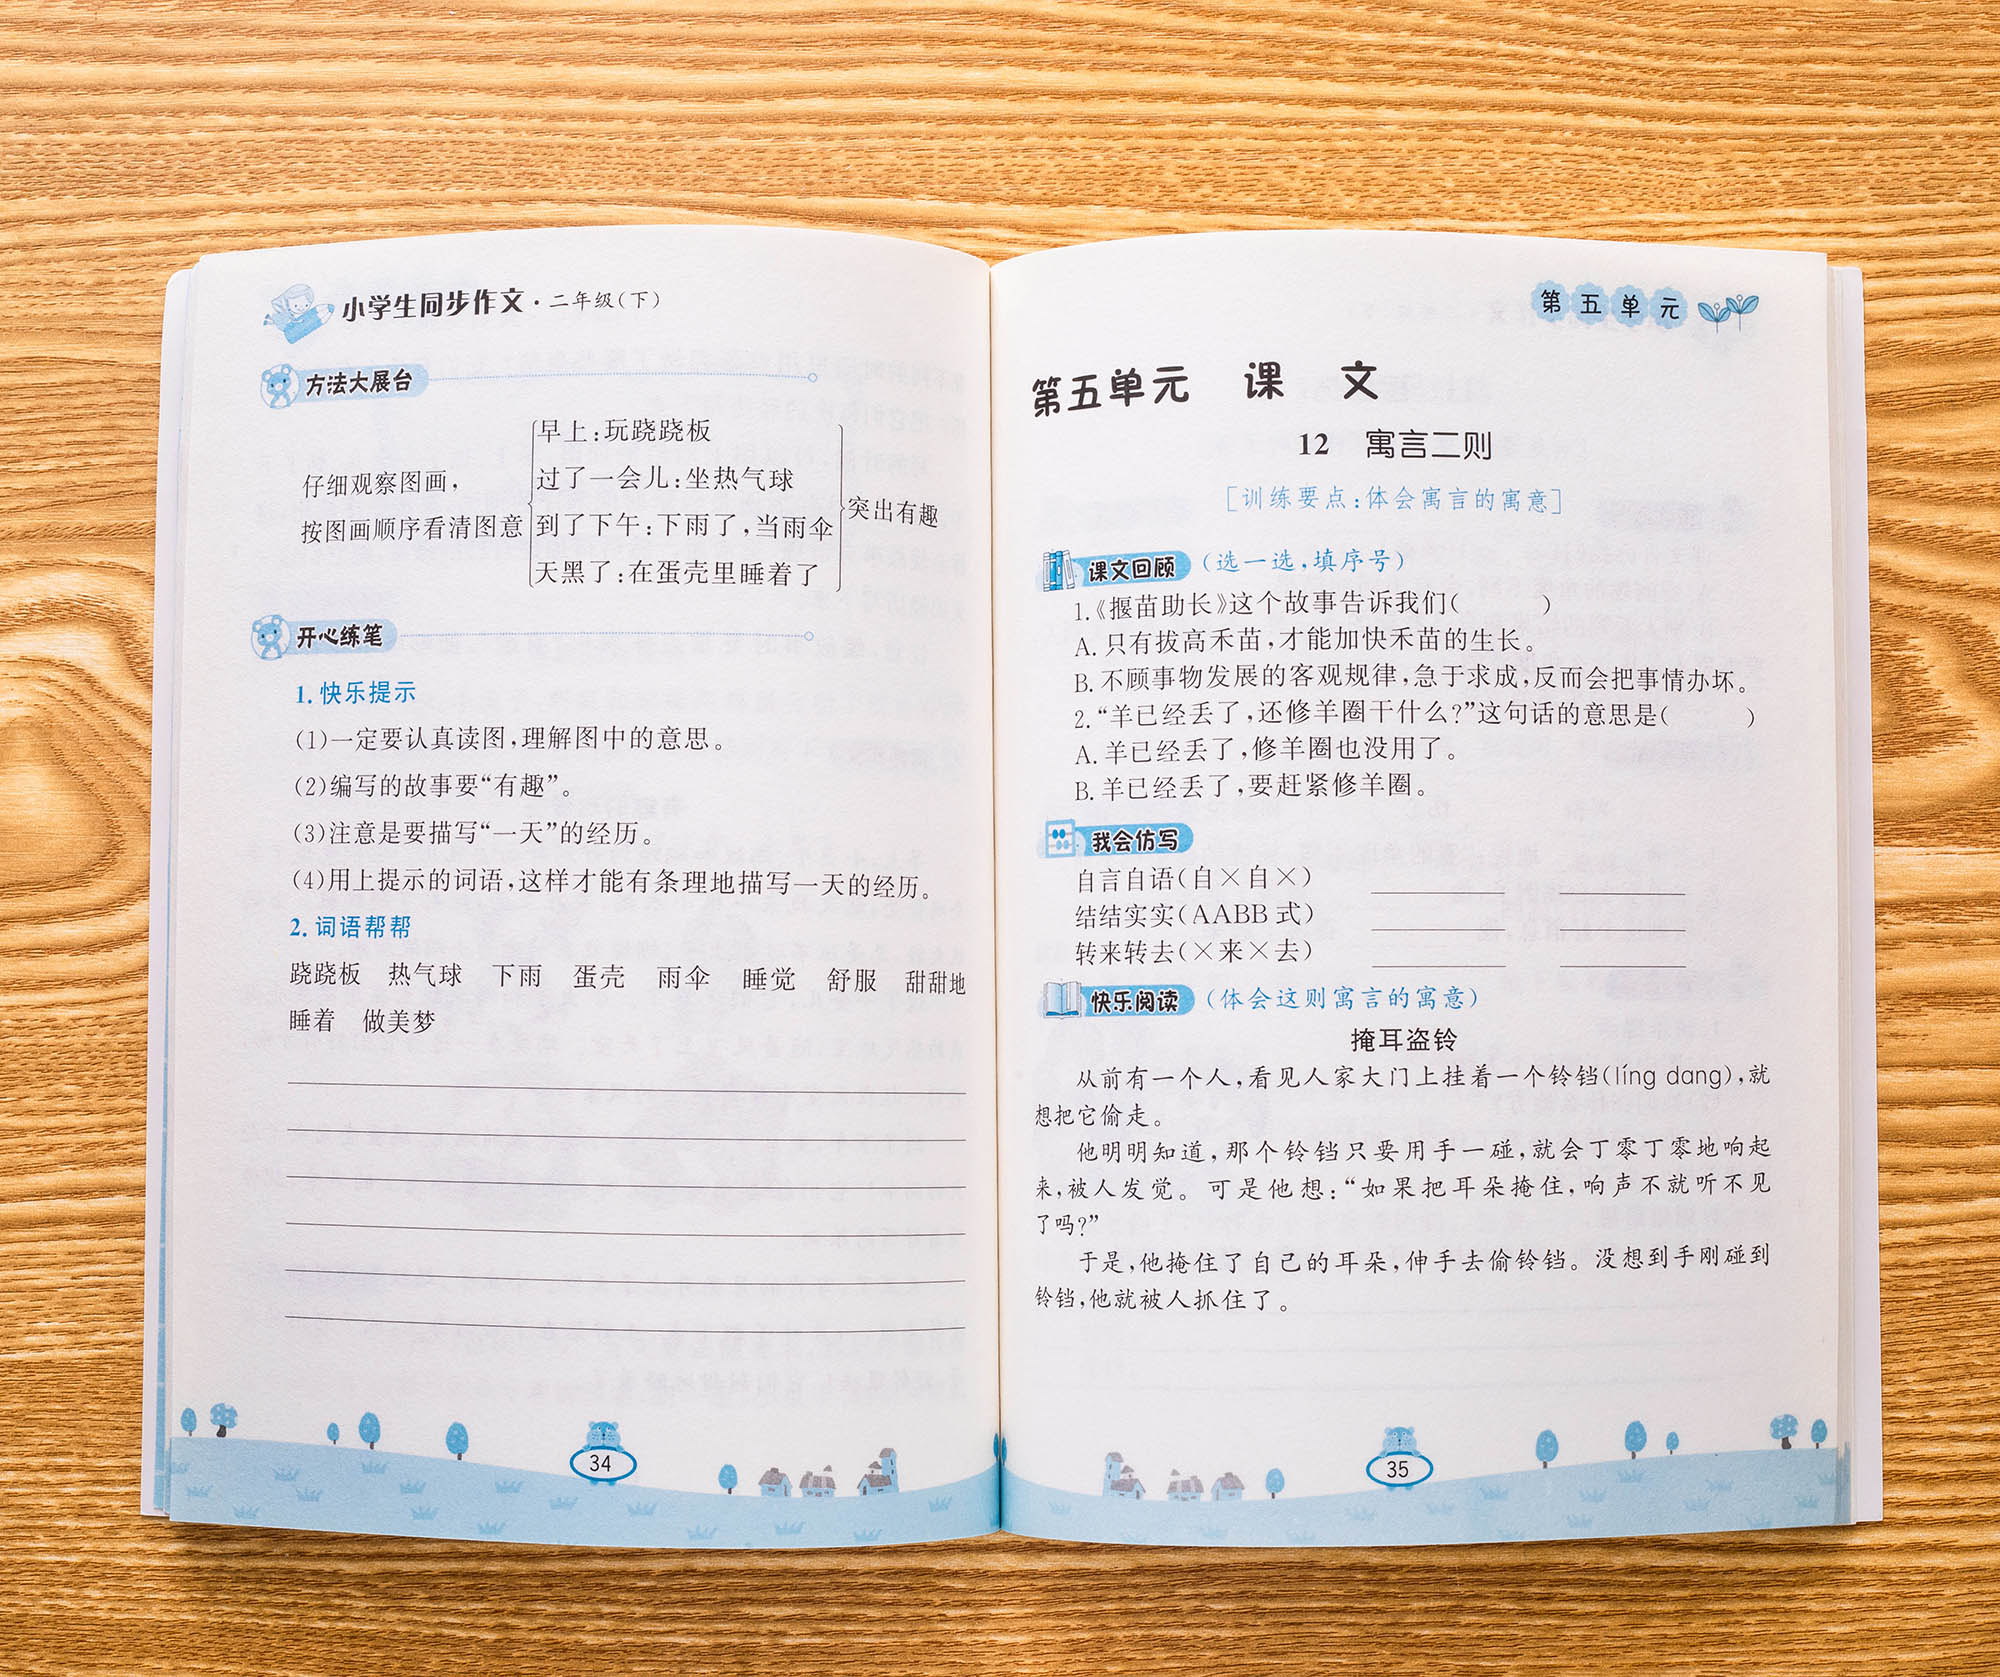 小学生同步作文·二年级(下)
方法大展台
仔细观察图画，
按图画顺序看清图意
早上：玩跷跷板
过了一会儿：坐热气球
到了下午：下雨了，当雨伞
天黑了：在蛋壳里睡着了
突出有趣
开心练笔
1.快乐提示
(1)一定要认真读图，理解图中的意思。
(2)编写的故事要“有趣”。
(3)注意是要描写“一天”的经历。
(4)用上提示的词语，这样才能有条理地描写一天的经历。
2.词语帮帮
跷跷板 热气球 下雨 蛋壳 雨伞 睡觉 舒服 甜甜地
睡着 做美梦
34
第五单元
第五单元 课 文
12 寓言二则
[训练要点：体会寓言的寓意]
课文回顾 (选一选，填序号)
1.《揠苗助长》这个故事告诉我们( )
A.只有拔高禾苗，才能加快禾苗的生长。
B.不顾事物发展的客观规律，急于求成，反而会把事情办坏。
2.“羊已经丢了，还修羊圈干什么？”这句话的意思是( )
A.羊已经丢了，修羊圈也没用了。
B.羊已经丢了，要赶紧修羊圈。
我会仿写
自言自语(自×自×)
结结实实(AABB式)
转来转去(×来×去)
快乐阅读 (体会这则寓言的寓意)
掩耳盗铃
从前有一个人，看见人家大门上挂着一个铃铛(líng dang)，就
想把它偷走。
他明明知道，那个铃铛只要用手一碰，就会丁零丁零地响起
来，被人发觉。可是他想：“如果把耳朵掩住，响声不就听不见
了吗？”
于是，他掩住了自己的耳朵，伸手去偷铃铛。没想到手刚碰到
铃铛，他就被人抓住了。
35